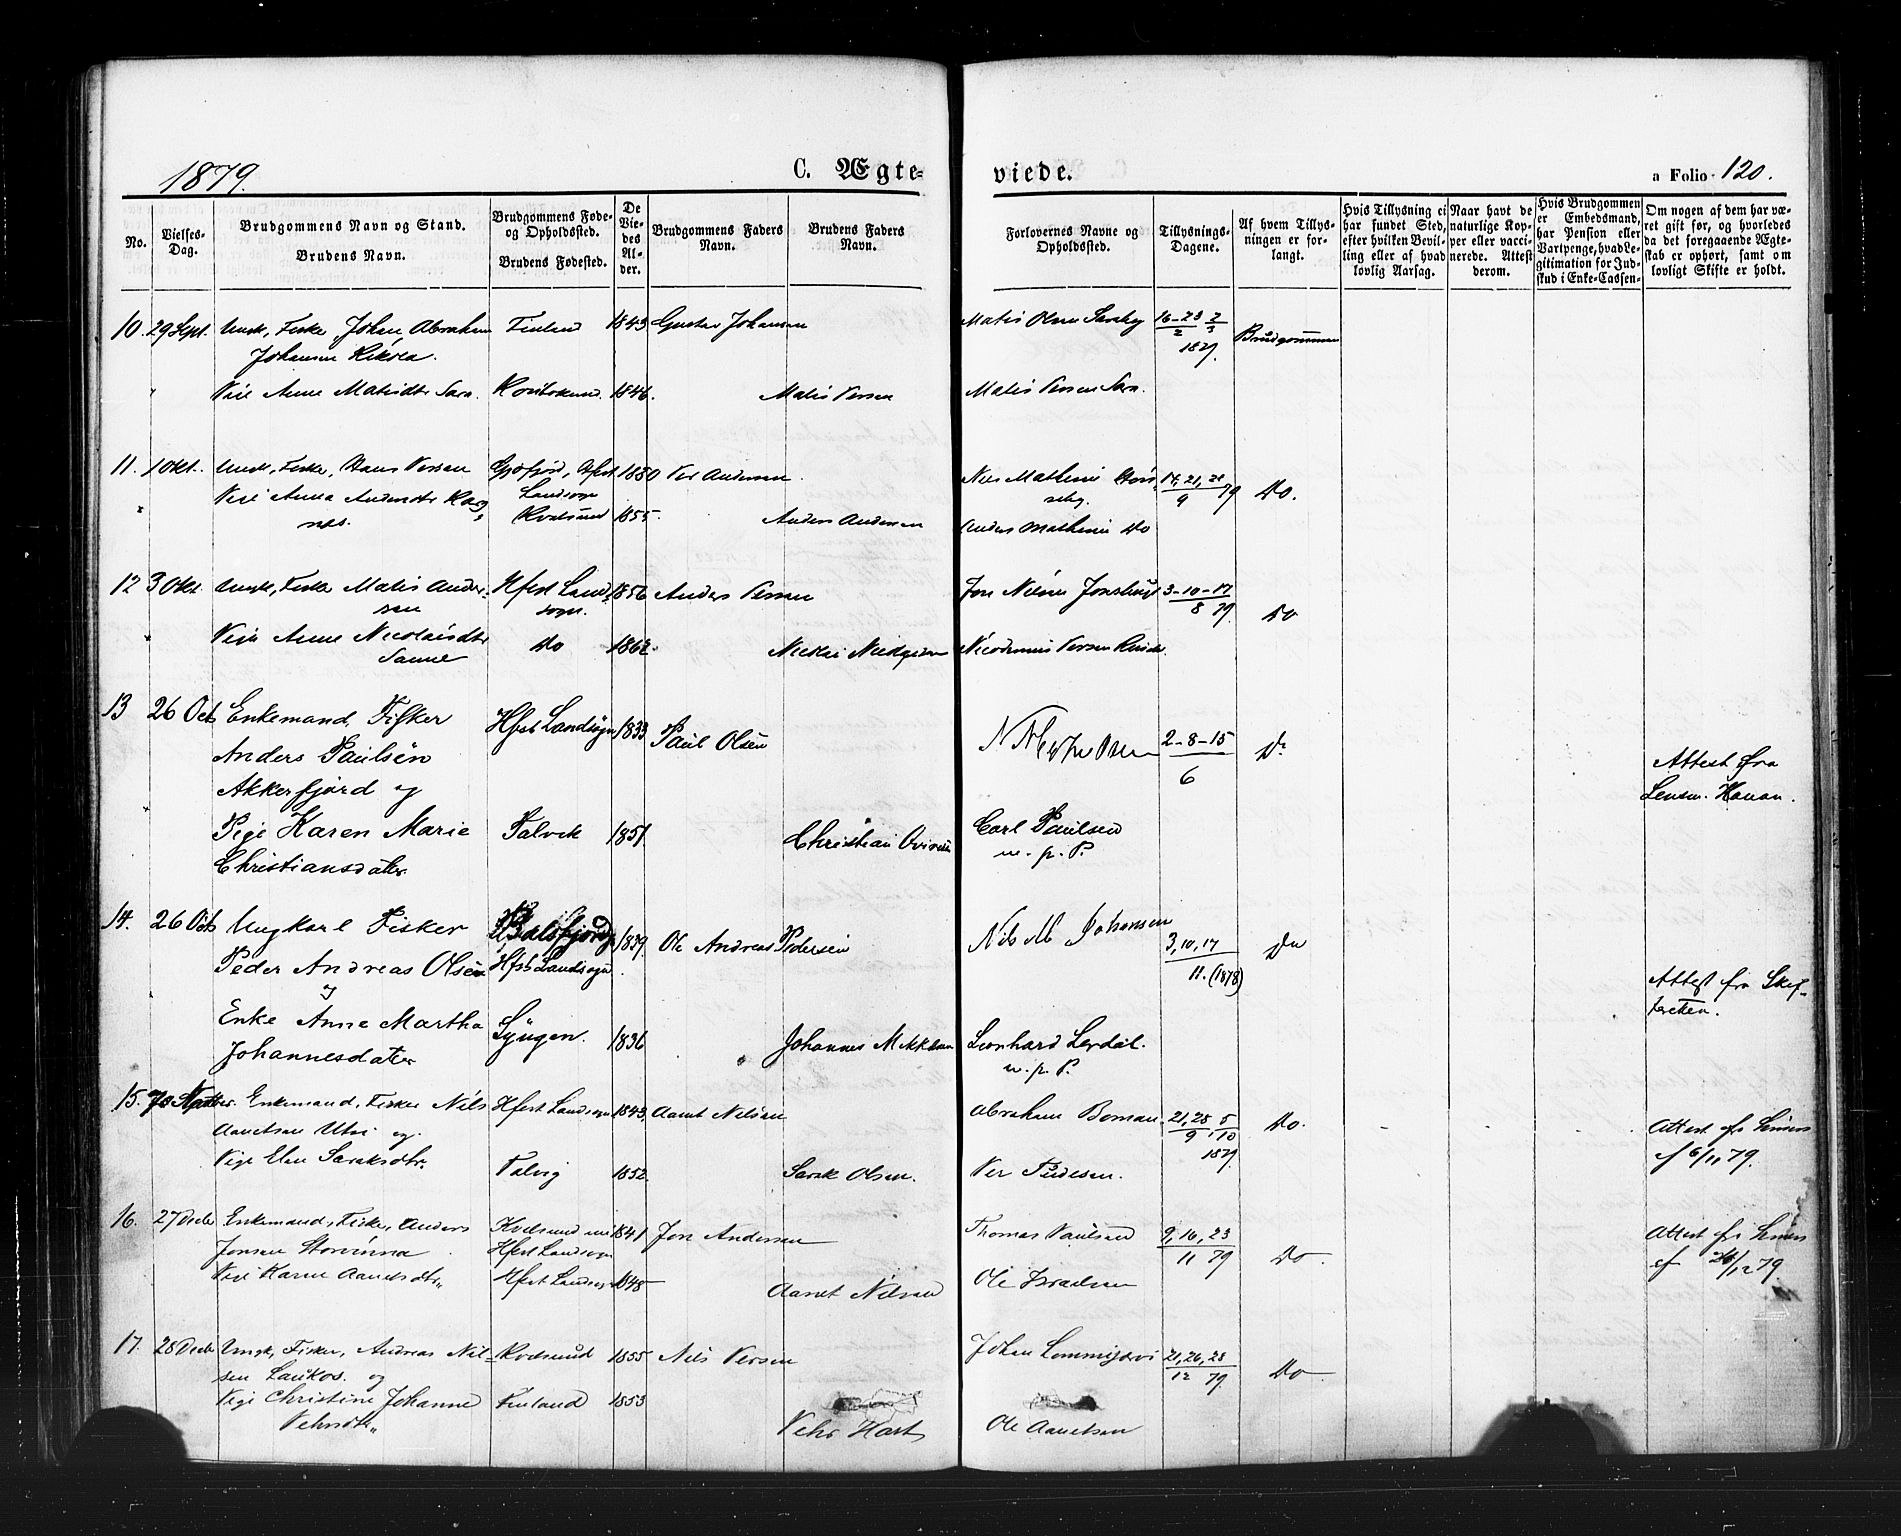 1879.
C. Ægte-
viede.
a Folio 120.
No.
Vielses-
Dag.
Brudgommens Navn og Stand.
Brudens Navn.
Brudgommens Føde-
og Opholdssted.
Brudens Fødested.
De
Vie-
des
Al-
der.
Brudgommens Faders
Navn.
Brudens Faders
Navn.
Forlovernes Navne og
Opholdssted.
Tillysnings-
Dagene.
Af hvem Tillys-
ningen er for-
langt.
Hvis Tillysning ei
har fundet Sted,
efter hvilken Bevil-
ling eller af hvad
lovlig Aarsag.
Naar havt de
naturlige Kop-
per eller vacci-
nerede. Attest
derom.
Hvis Brudgommen
er Embedsmand,
har Pension eller
Vartpenge, hvad Le-
gitimation for Ind-
skud i Enke-Cassen-
Om nogen af dem har væ-
ret gift før, og hvorledes
da det foregaaende Ægte-
skab er ophørt, samt om
lovligt Skifte er holdt.
10. 29 Sept. Ungk, Fisker Johan Abraham Finland 1843 Gustav Johansen Matis Olsen 16-23 2
Johansen 2 3
1879. Brudgommen
Pige Anne Matisdtr Sara. 1846. Matis Persen Matis Persen Sara.
11. 1 Okt. Ungk, Fisker, Hans Persen Hfest 1850 Per Andersen Nils Mathisen 14, 21, 28
Landsogn 9 79 Do.
Pige Anna Andersdtr Kvalsund 1855 Anders Andersen Anders Mathisen Do
12 3 Okt. Ungk, Fisker Matis Ander- Hfest Land- 1856 Anders Persen Jon Nilsen 3-10-17
sen sogn. 8 79 Do
Pige Anne Nicolaisdtr Do 1862. Nicolai Nicodemus Persen
13 26 Oct Enkemand, Fisker Hfest Landsogn 1833 Paul Olsen 2-8-15 Do
6
Anders Paulsen Attest fra
Akkerfjord og Lensm.
Pige Karen Marie Talvik 1851 Christian Carl Paulsen
Christiansdater m. p. P.
14. 26 Oct Ungkarl Fisker Balsfjord 1839. Ole Andreas Pedersen Nils M Johansen 3, 10, 17 Do
Peder Andreas Olsen Hfest Landsogn 11. (1878) Attest fra Skif-
og teretten.
Enke Anne Martha Lyngen. 1836 Johannes Mikkelsen Leonhard Lerdal.
Johannesdater m. p. P.
15. Enkemand, Fisker Nils Hfest Landsogn 1843, Aanet Nilsen Abraham Boman 21, 28, 5 Do.
Aanetsen og 9 10 Attest fra
1879. 6/11 79.
Pige Elen Saraksdtr. Talvig 1852. Sarak Olsen. Per
16. 27 Decbr Enkemand, Fisker, Anders Kvalsund 1841 Jon Andersen Thomas Paulsen 9, 16, 23 Attest fra
Jonsen Hfest Landsogn 11 79 Do. /12 79
Pige Karen Aanetsdtr. Hfest Landsogn 1848 Aanet Nilsen Ole Israelsen
17. 28 Decbr Ungk, Fisker, Andreas Nil- Kvalsund 1855 Nils Persen Johan 21, 26, 28
sen og 12 79. Do
Pige Christine Johanne Finland 1853
Ole Aanetsen